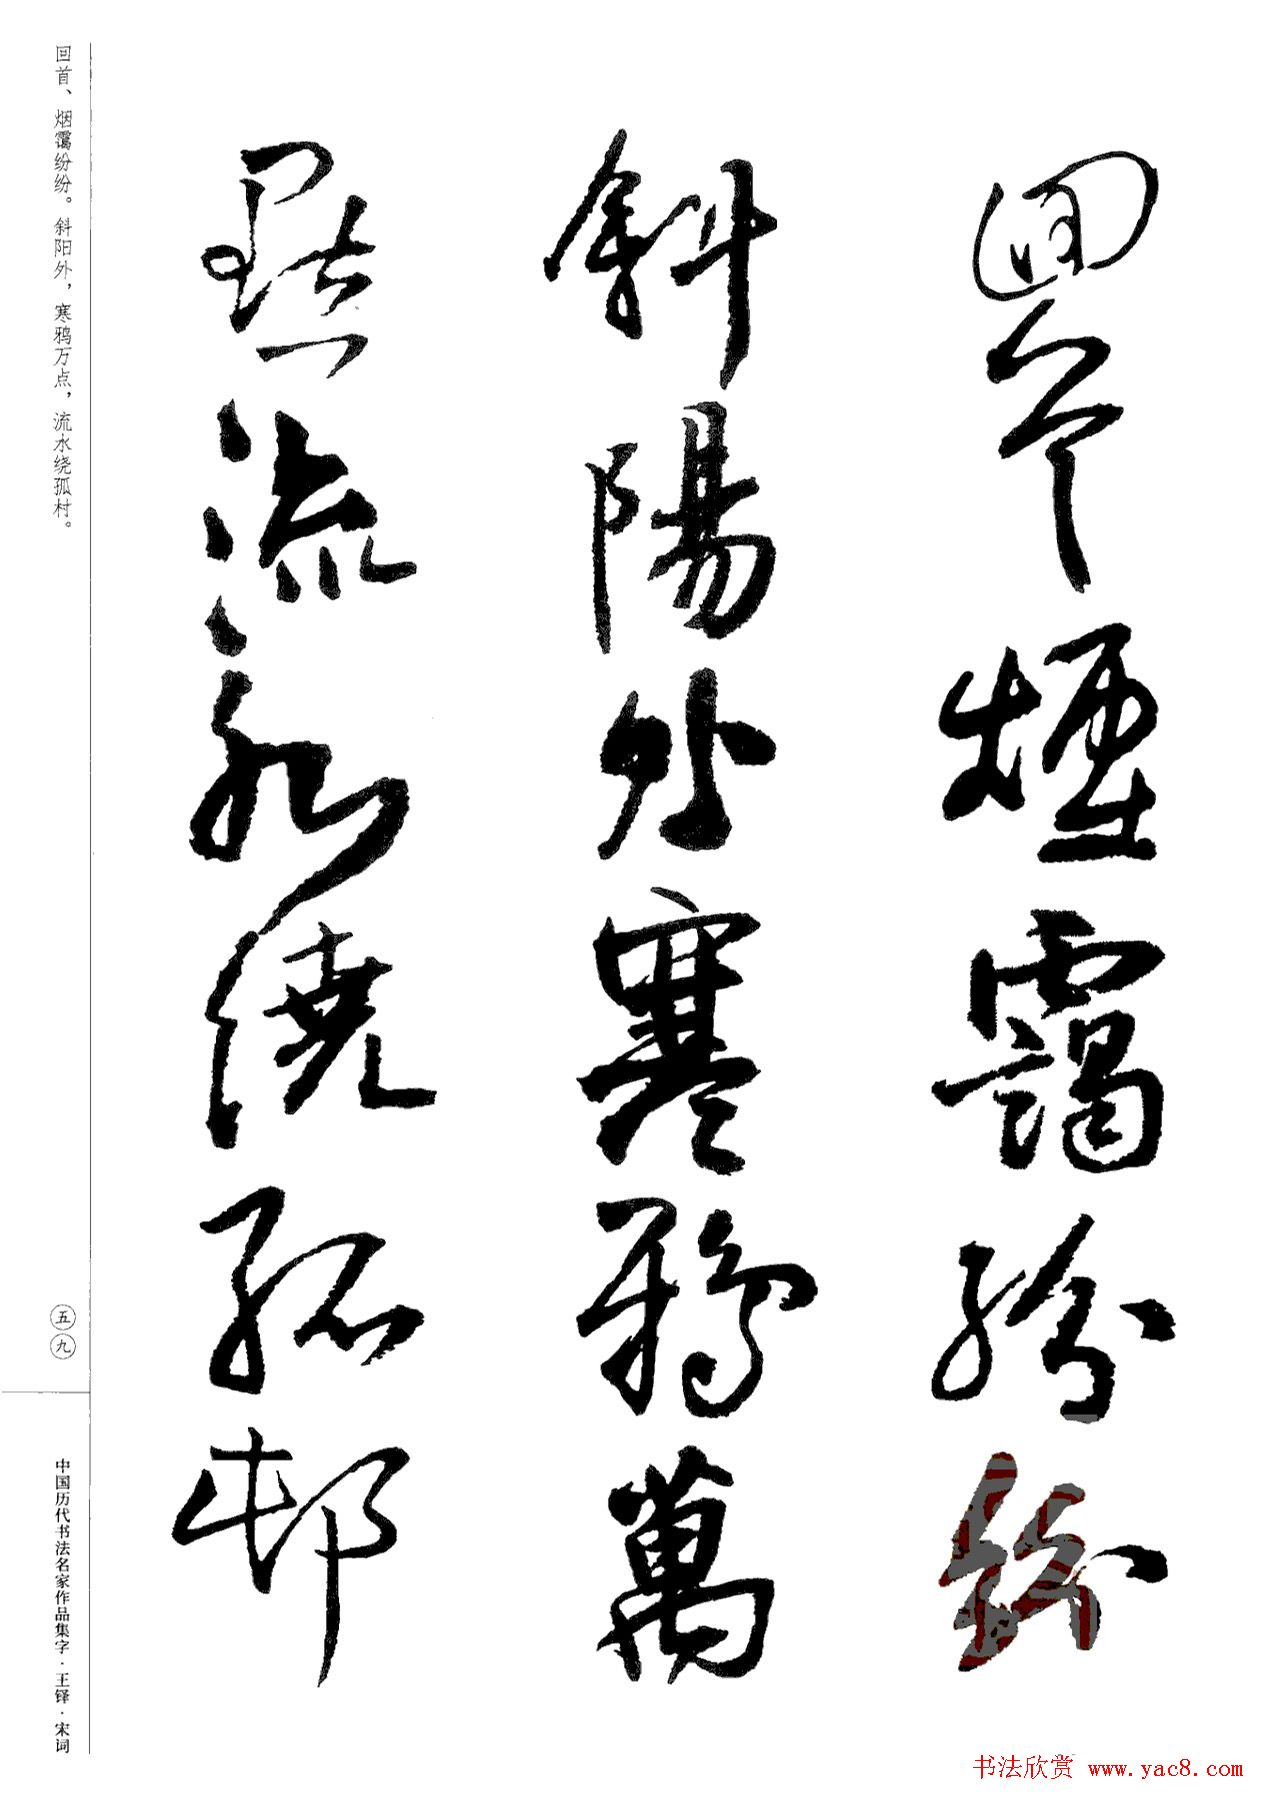 回首煙靄紛紛
斜陽外寒鴉萬
點流水繞孤邨
回首、烟霭纷纷。斜阳外，寒鸦万点，流水绕孤村。
五九
中国历代书法名家作品集字·王铎·宋词
书法欣赏 www.yac8.com